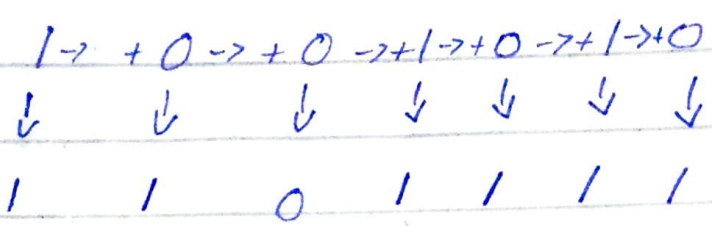 1 -> + 0 -> + 0 -> + 1 -> + 0 -> + 1 -> + 0
↓ ↓ ↓ ↓ ↓ ↓ ↓
1 1 0 1 1 1 1